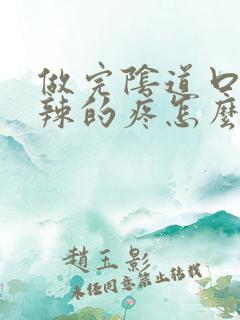 做完陰道口
辣的疼怎麽
趙玉影
未经同意禁止转载